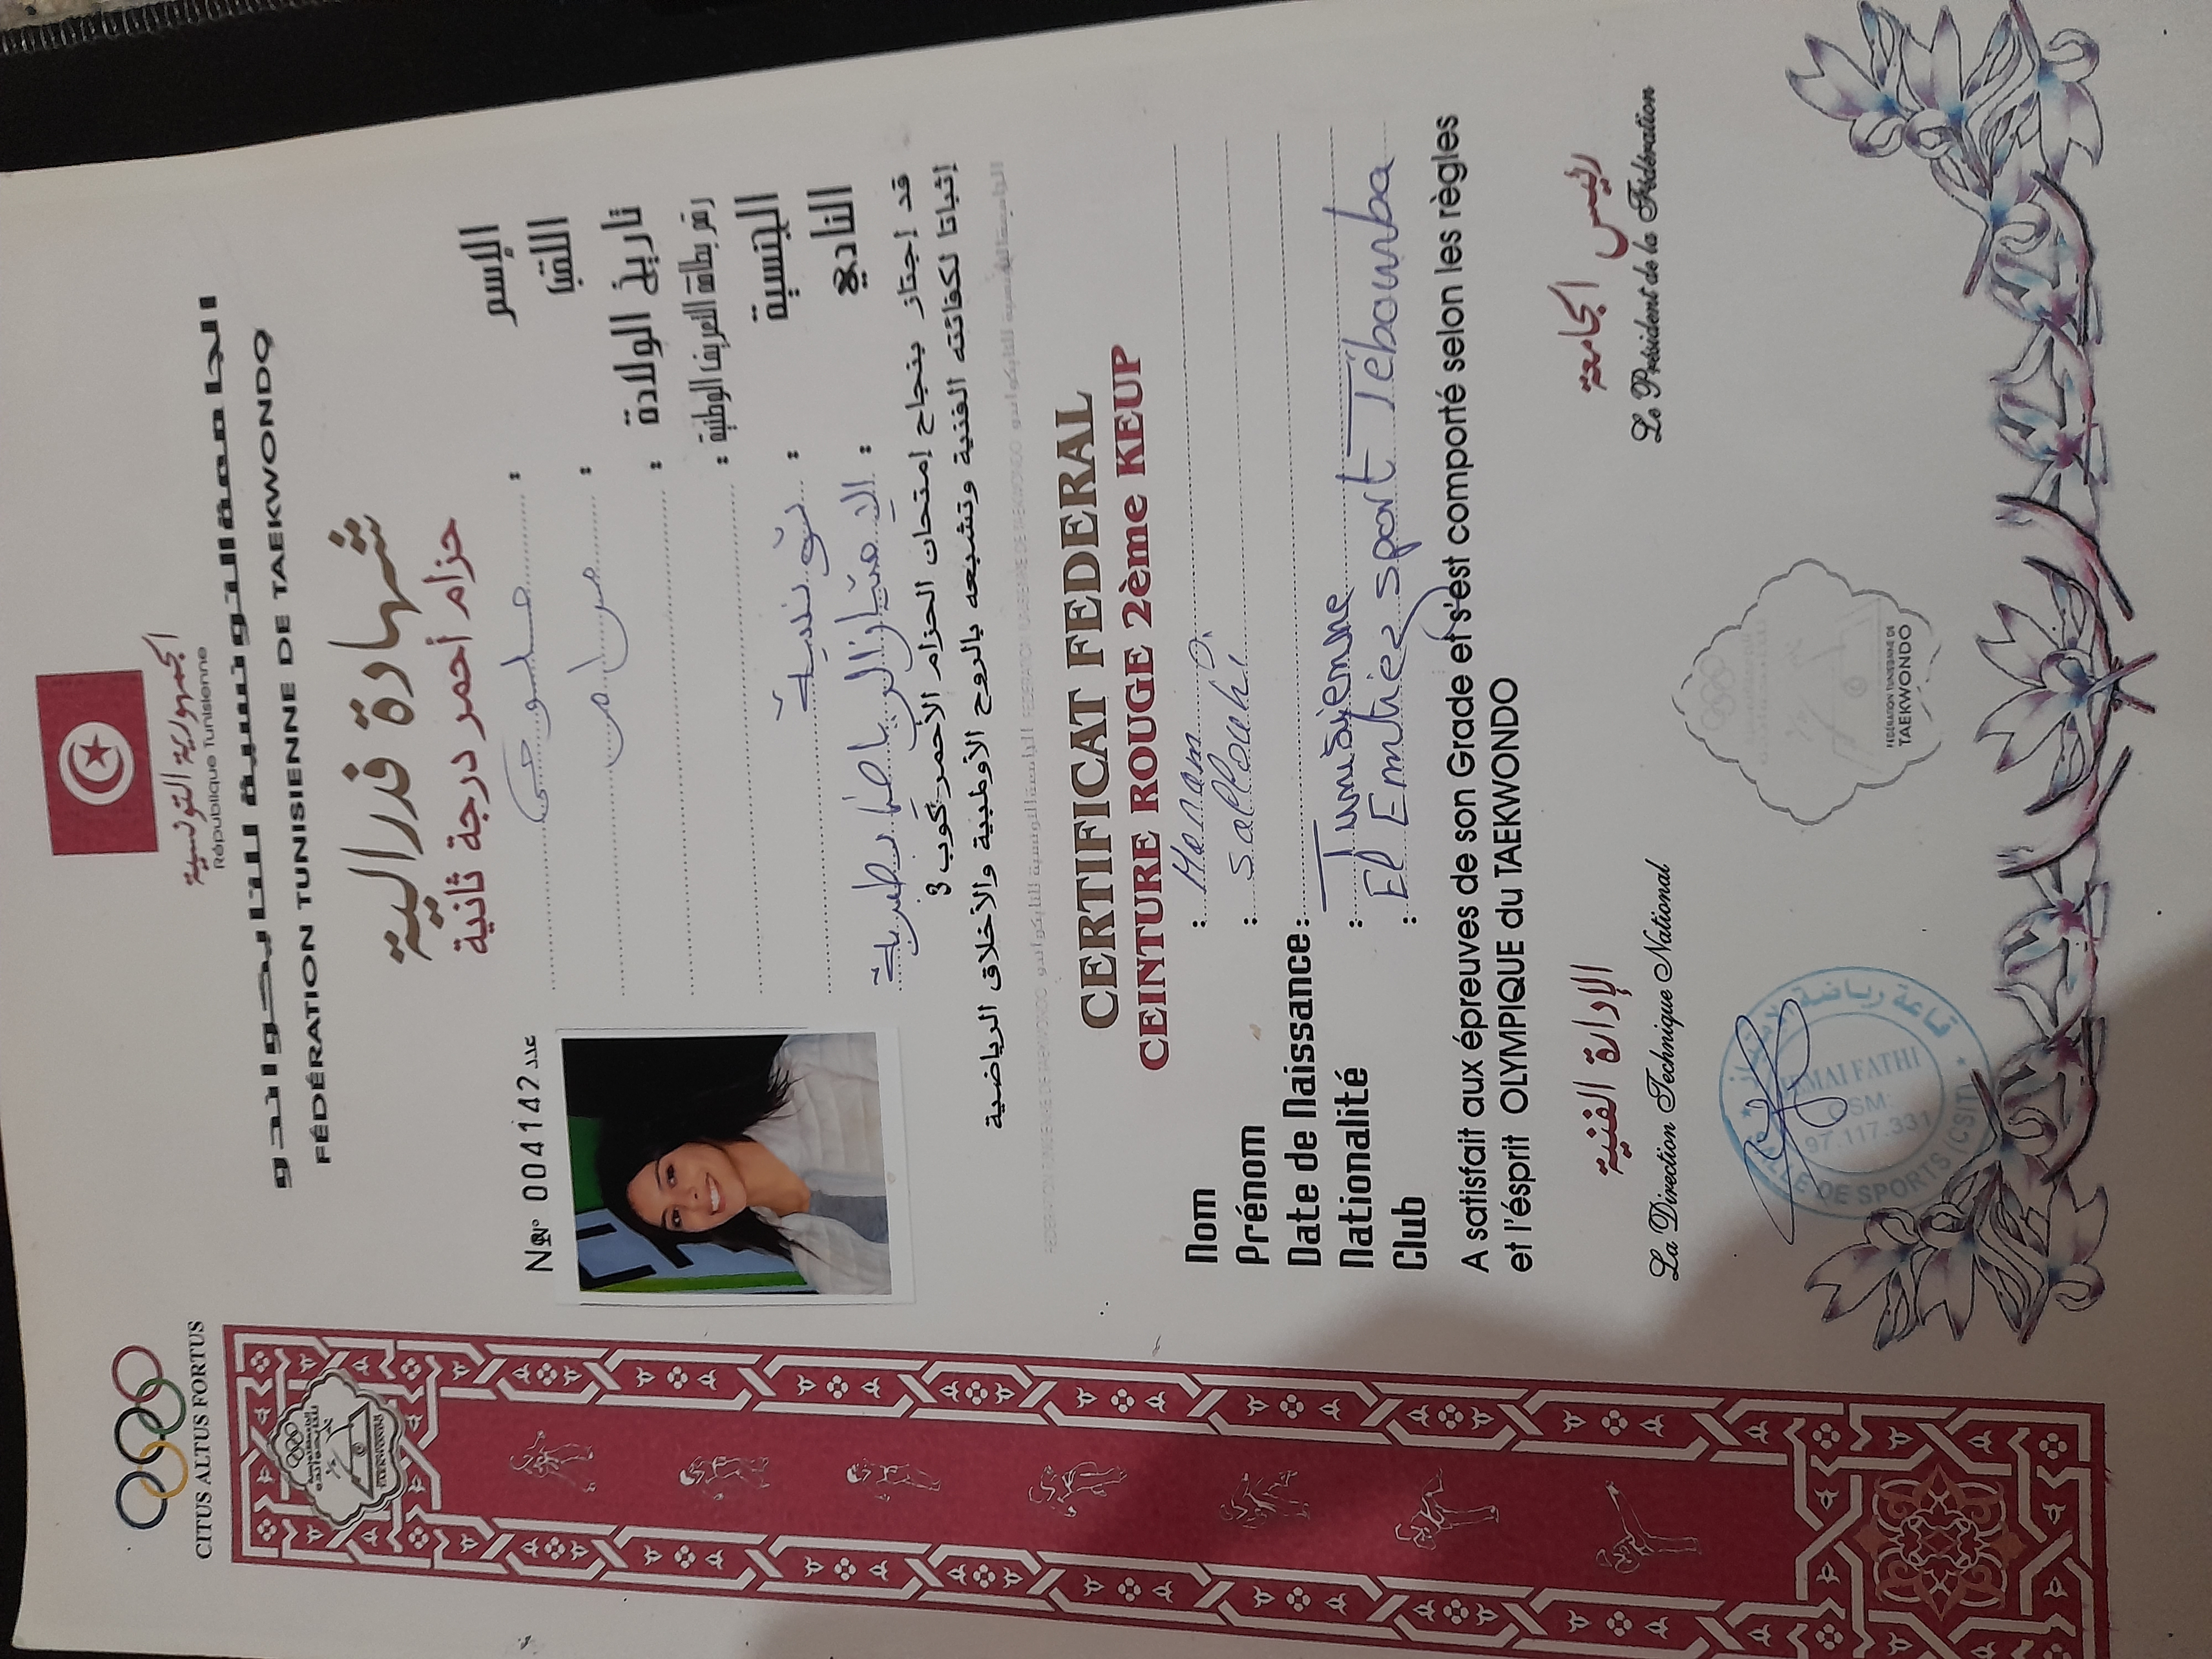 CITUS ALTUS FORTUS
الجمهورية التونسية
République Tunisienne
الجامعة التونسية للتايكواندو
FÉDÉRATION TUNISIENNE DE TAEKWONDO
شهادة فدرالية
حزام أحمر درجة ثانية
N° 004142 عدد
الإسم :
اللقب :
تاريخ الولادة :
رقم بطاقة التعريف الوطنية :
الجنسية : تونسية
النادي : الرياضة بطبربة
قد إجتاز بنجاح إمتحان الحزام الأحمر كوب 3
إثباتا لكفائته الفنية وتشبعه بالروح الأولمبية والأخلاق الرياضية
CERTIFICAT FEDERAL
CEINTURE ROUGE 2ème KEUP
Nom :
Prénom :
Date de Naissance :
Nationalité : Tunisienne
Club : El Emtiez sport Tébourba
A satisfait aux épreuves de son Grade et s'est comporté selon les règles
et l'ésprit OLYMPIQUE du TAEKWONDO
الإدارة الفنية
La Direction Technique National
رئيس الجامعة
Le Président de la Fédération
FÉDÉRATION TUNISIENNE DE
TAEKWONDO
قاعة رياضة
FATHI
GSM:
97.117.331
DE SPORTS (CSIT)